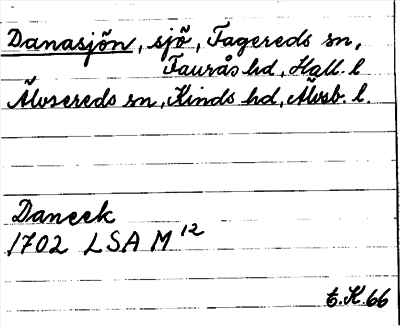 Danasjön, sjö, Fagereds sn,
Faurås hd, Hall. l
Älvsereds sn, Kinds hd, Älvsb. l.
Daneek
1702 LSA M 12
t.K.66